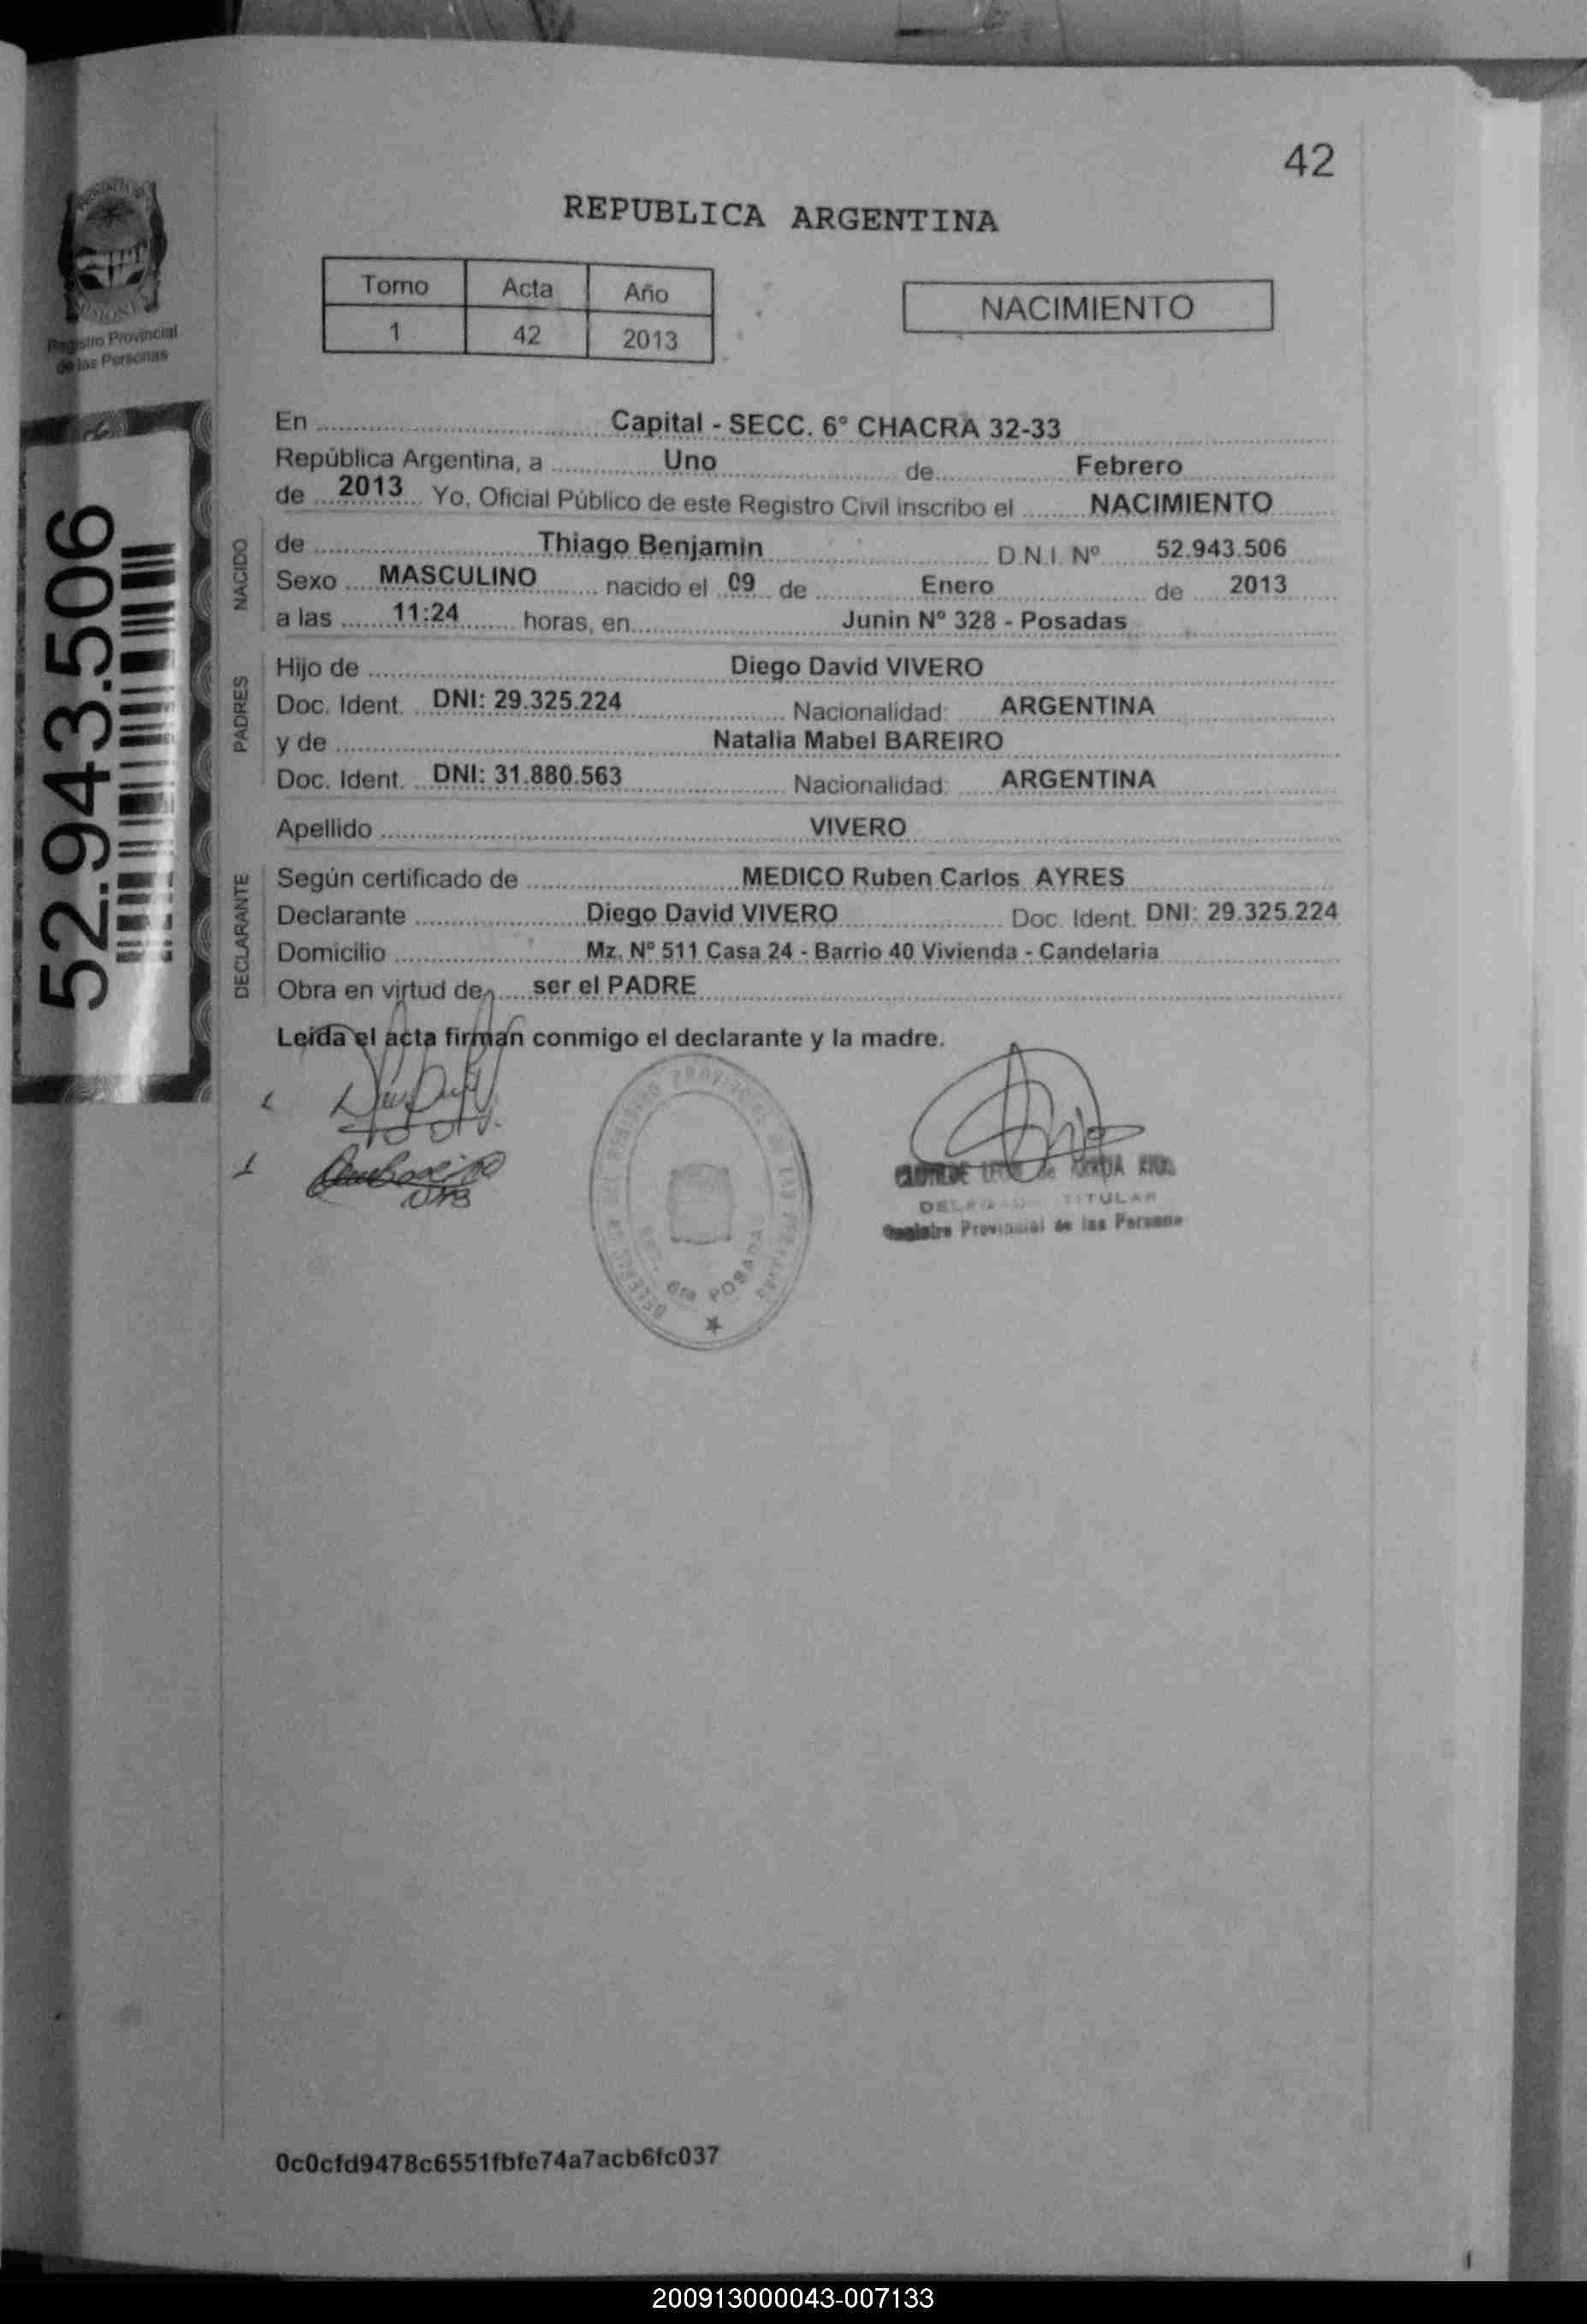 42
REPUBLICA ARGENTINA
Tomo Acta Año
1 42 2013
NACIMIENTO
Registro Provincial
de las Personas
52.943.506
En Capital - SECC. 6° CHACRA 32-33
República Argentina, a Uno de Febrero
de 2013 Yo, Oficial Público de este Registro Civil inscribo el NACIMIENTO
NACIDO
de Thiago Benjamin D.N.I. Nº 52.943.506
Sexo MASCULINO nacido el 09 de Enero de 2013
a las 11:24 horas, en Junin Nº 328 - Posadas
PADRES
Hijo de Diego David VIVERO
Doc. Ident. DNI: 29.325.224 Nacionalidad: ARGENTINA
y de Natalia Mabel BAREIRO
Doc. Ident. DNI: 31.880.563 Nacionalidad: ARGENTINA
Apellido VIVERO
DECLARANTE
Según certificado de MEDICO Ruben Carlos AYRES
Declarante Diego David VIVERO Doc. Ident. DNI: 29.325.224
Domicilio Mz. Nº 511 Casa 24 - Barrio 40 Vivienda - Candelaria
Obra en virtud de ser el PADRE
Leída el acta firman conmigo el declarante y la madre.
6ta POSADAS
TITULAR
Registro Provincial de las Personas
0c0cfd9478c6551fbfe74a7acb6fc037
200913000043-007133